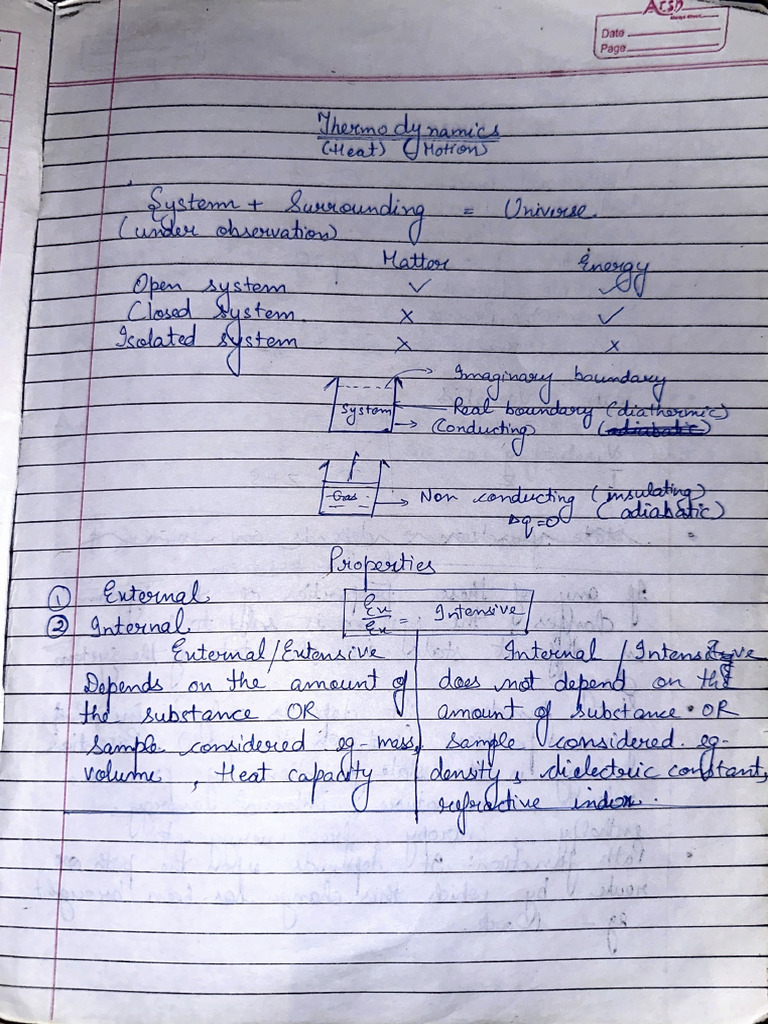 Date
Page
Thermodynamics
(Heat) (Motion)
System + Surrounding = Universe
(under observation)
Matter Energy
Open system ✓ ✓
Closed System × ✓
Isolated system × ×
Imaginary boundary
System Real boundary (diathermic)
(Conducting) (adiabatic)
Gas Non conducting (insulating)
Δq=0 (adiabatic)
Properties
① External
② Internal
Ex/Ex = Intensive
External/Extensive
Depends on the amount of
the substance OR
sample considered eg-mass,
volume, Heat capacity
Internal / Intensive
does not depend on the
amount of substance OR
sample considered. eg-
density, dielectric constant,
refractive index.